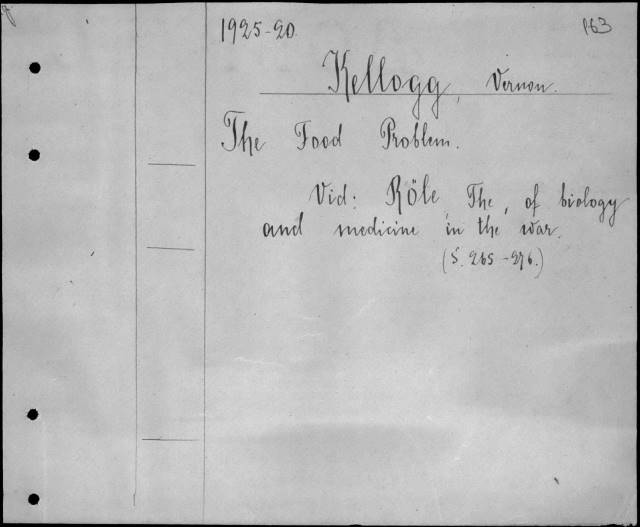 1925-20 163
Kellogg, Vernon.
The Food Problem.
Vid: Röle, The, of biology
and medicine in the war.
(S. 265-276.)